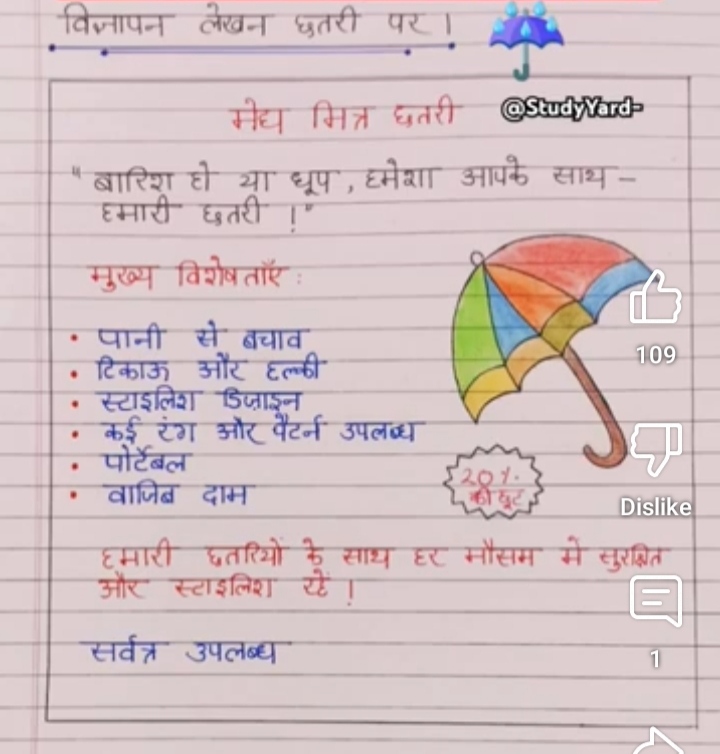 विज्ञापन लेखन छतरी पर ।
@StudyYard-
मेघ मित्र छतरी
" बारिश हो या धूप , हमेशा आपके साथ -
हमारी छतरी !"
मुख्य विशेषताएँ :
• पानी से बचाव
• टिकाऊ और हल्की
• स्टाइलिश डिज़ाइन
• कई रंग और पैटर्न उपलब्ध
• पोर्टेबल
• वाजिब दाम
20%
की छूट
हमारी छतरियों के साथ हर मौसम में सुरक्षित
और स्टाइलिश रहें !
सर्वत्र उपलब्ध
109
Dislike
1